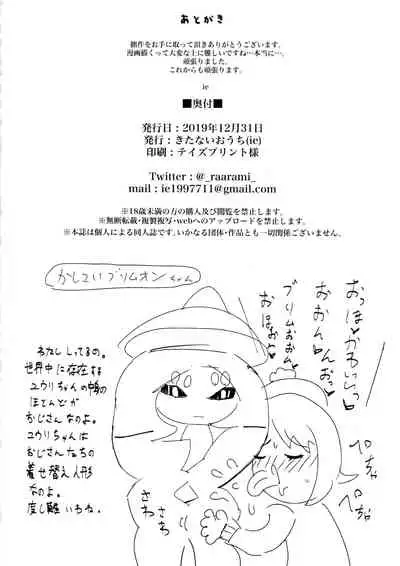 あとがき
拙作をお手に取って頂きありがとうございます。
漫画描くって大変な上に難しいですね…本当に…。
頑張りました。
これからも頑張ります。
ie
■奥付■
発行日：2019年12月31日
発行：きたないおうち(ie)
印刷：テイズプリント様
Twitter：@_raarami_
mail：ie1997711@gmail.com
※18歳未満の方の購入及び閲覧を禁止します。
※無断転載・複製複写・webへのアップロードを禁止します。
※本誌は個人による同人誌です。いかなる団体・作品とも一切関係ございません。
かしこいブリムオンちゃん
わたししってるの。
世界中に存在する
ユウリちゃんの中身の
ほとんどが
おじさんなのよ。
ユウリちゃんは
おじさんたちの
着せ替え人形
なのよ。
度し難いわね。
さわ
さわ
ペちゃ
ペちゃ